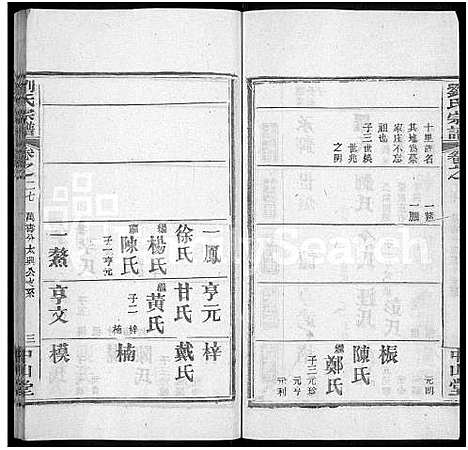 劉氏宗譜
卷之
中山堂
十里濟名
其地爲葵
家庄不忘
祖也
子三世模
之開
一鰲
一鵬
振
元開
繼
陳氏
鄭氏
子三元珍
元亨
元利
劉氏宗譜
卷之二七
萬
三
中山堂
一鳳
徐氏
繼
楊氏
陳氏
子二亨元
一鰲
亨元
甘氏
繼
黃氏
子二梓
楠
亨文
梓
戴氏
楠
模